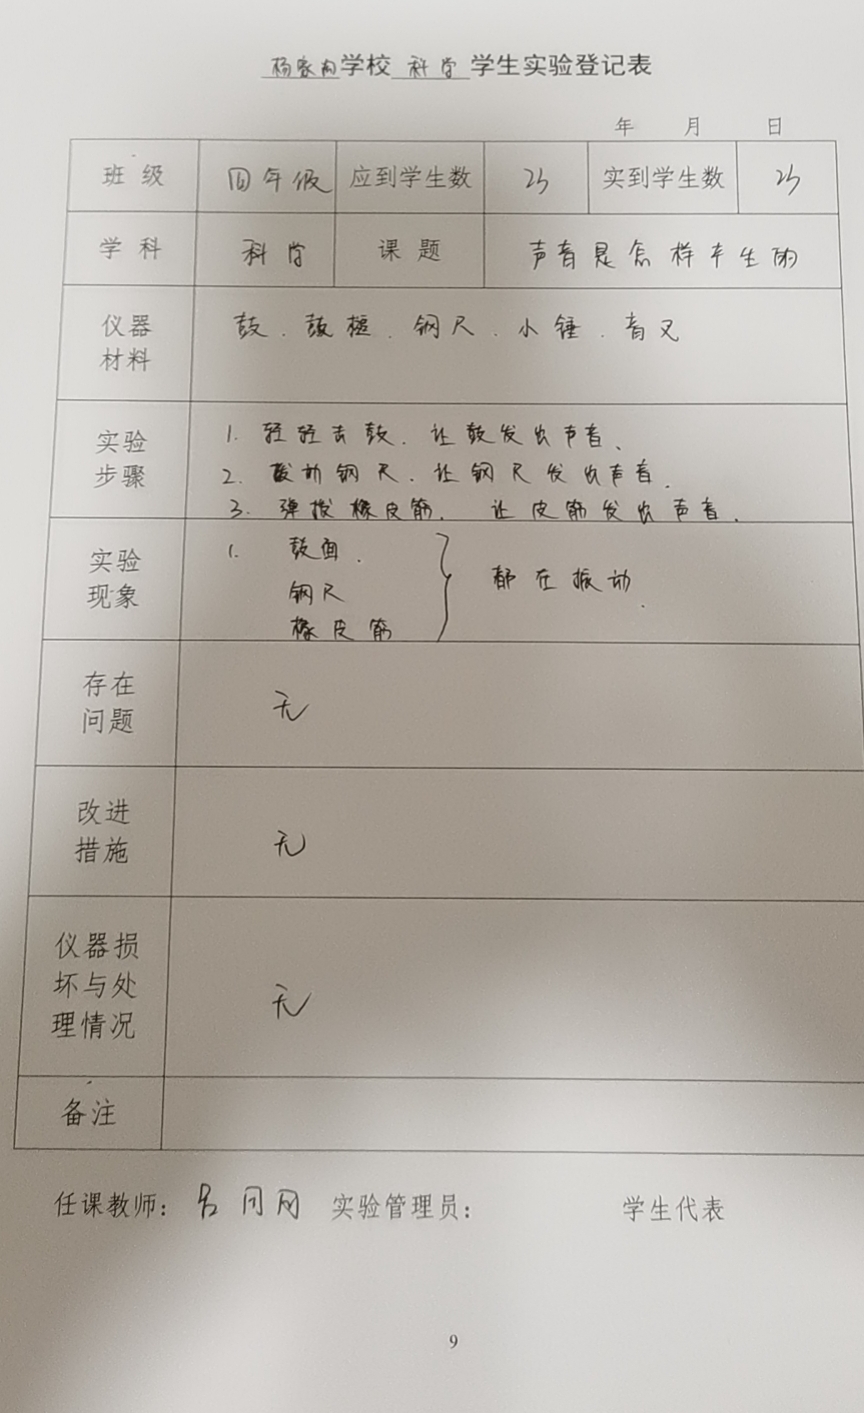 杨家向学校 科学 学生实验登记表
年 月 日
班级 四年级 应到学生数 23 实到学生数 23
学科 科学 课题 声音是怎样产生的
仪器 鼓、鼓槌、钢尺、小锤、音叉
材料
实验 1. 轻轻击鼓、让鼓发出声音、
步骤 2. 拨动钢尺、让钢尺发出声音.
3. 弹拨橡皮筋、让皮筋发出声音.
实验 1. 鼓面.
现象 钢尺 都在振动.
橡皮筋
存在
问题 无
改进
措施 无
仪器损
坏与处 无
理情况
备注
任课教师: 实验管理员: 学生代表
9